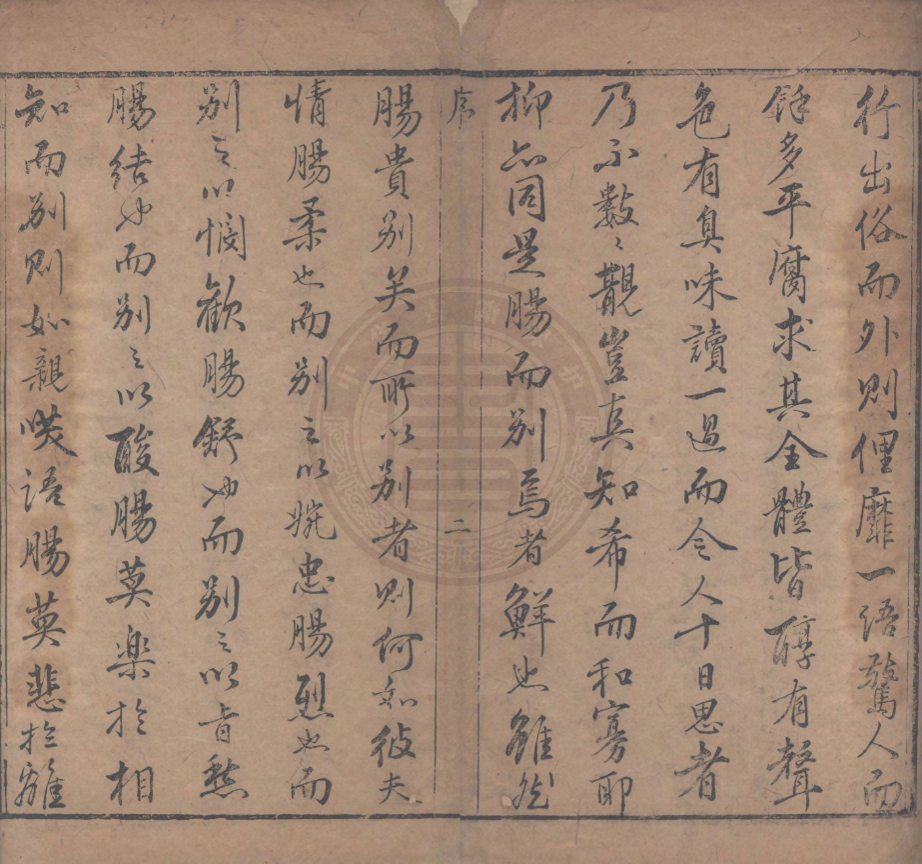 行出俗而外則俚靡一語驚人而
餘多平腐求其全體皆醇有聲
色有臭味讀一過而令人十日思者
乃不數〻覯豈真知希而和寡耶
抑亦同是腸而別焉者鮮也雖然
序
二
腸貴別矣而所以別者則何如彼夫
情腸柔也而別之以婉忠腸烈也而
別之以歡腸舒也而別之以旨愁
腸結也而別之以酸腸莫楽於相
知而別則如親咲語腸莫悲於離